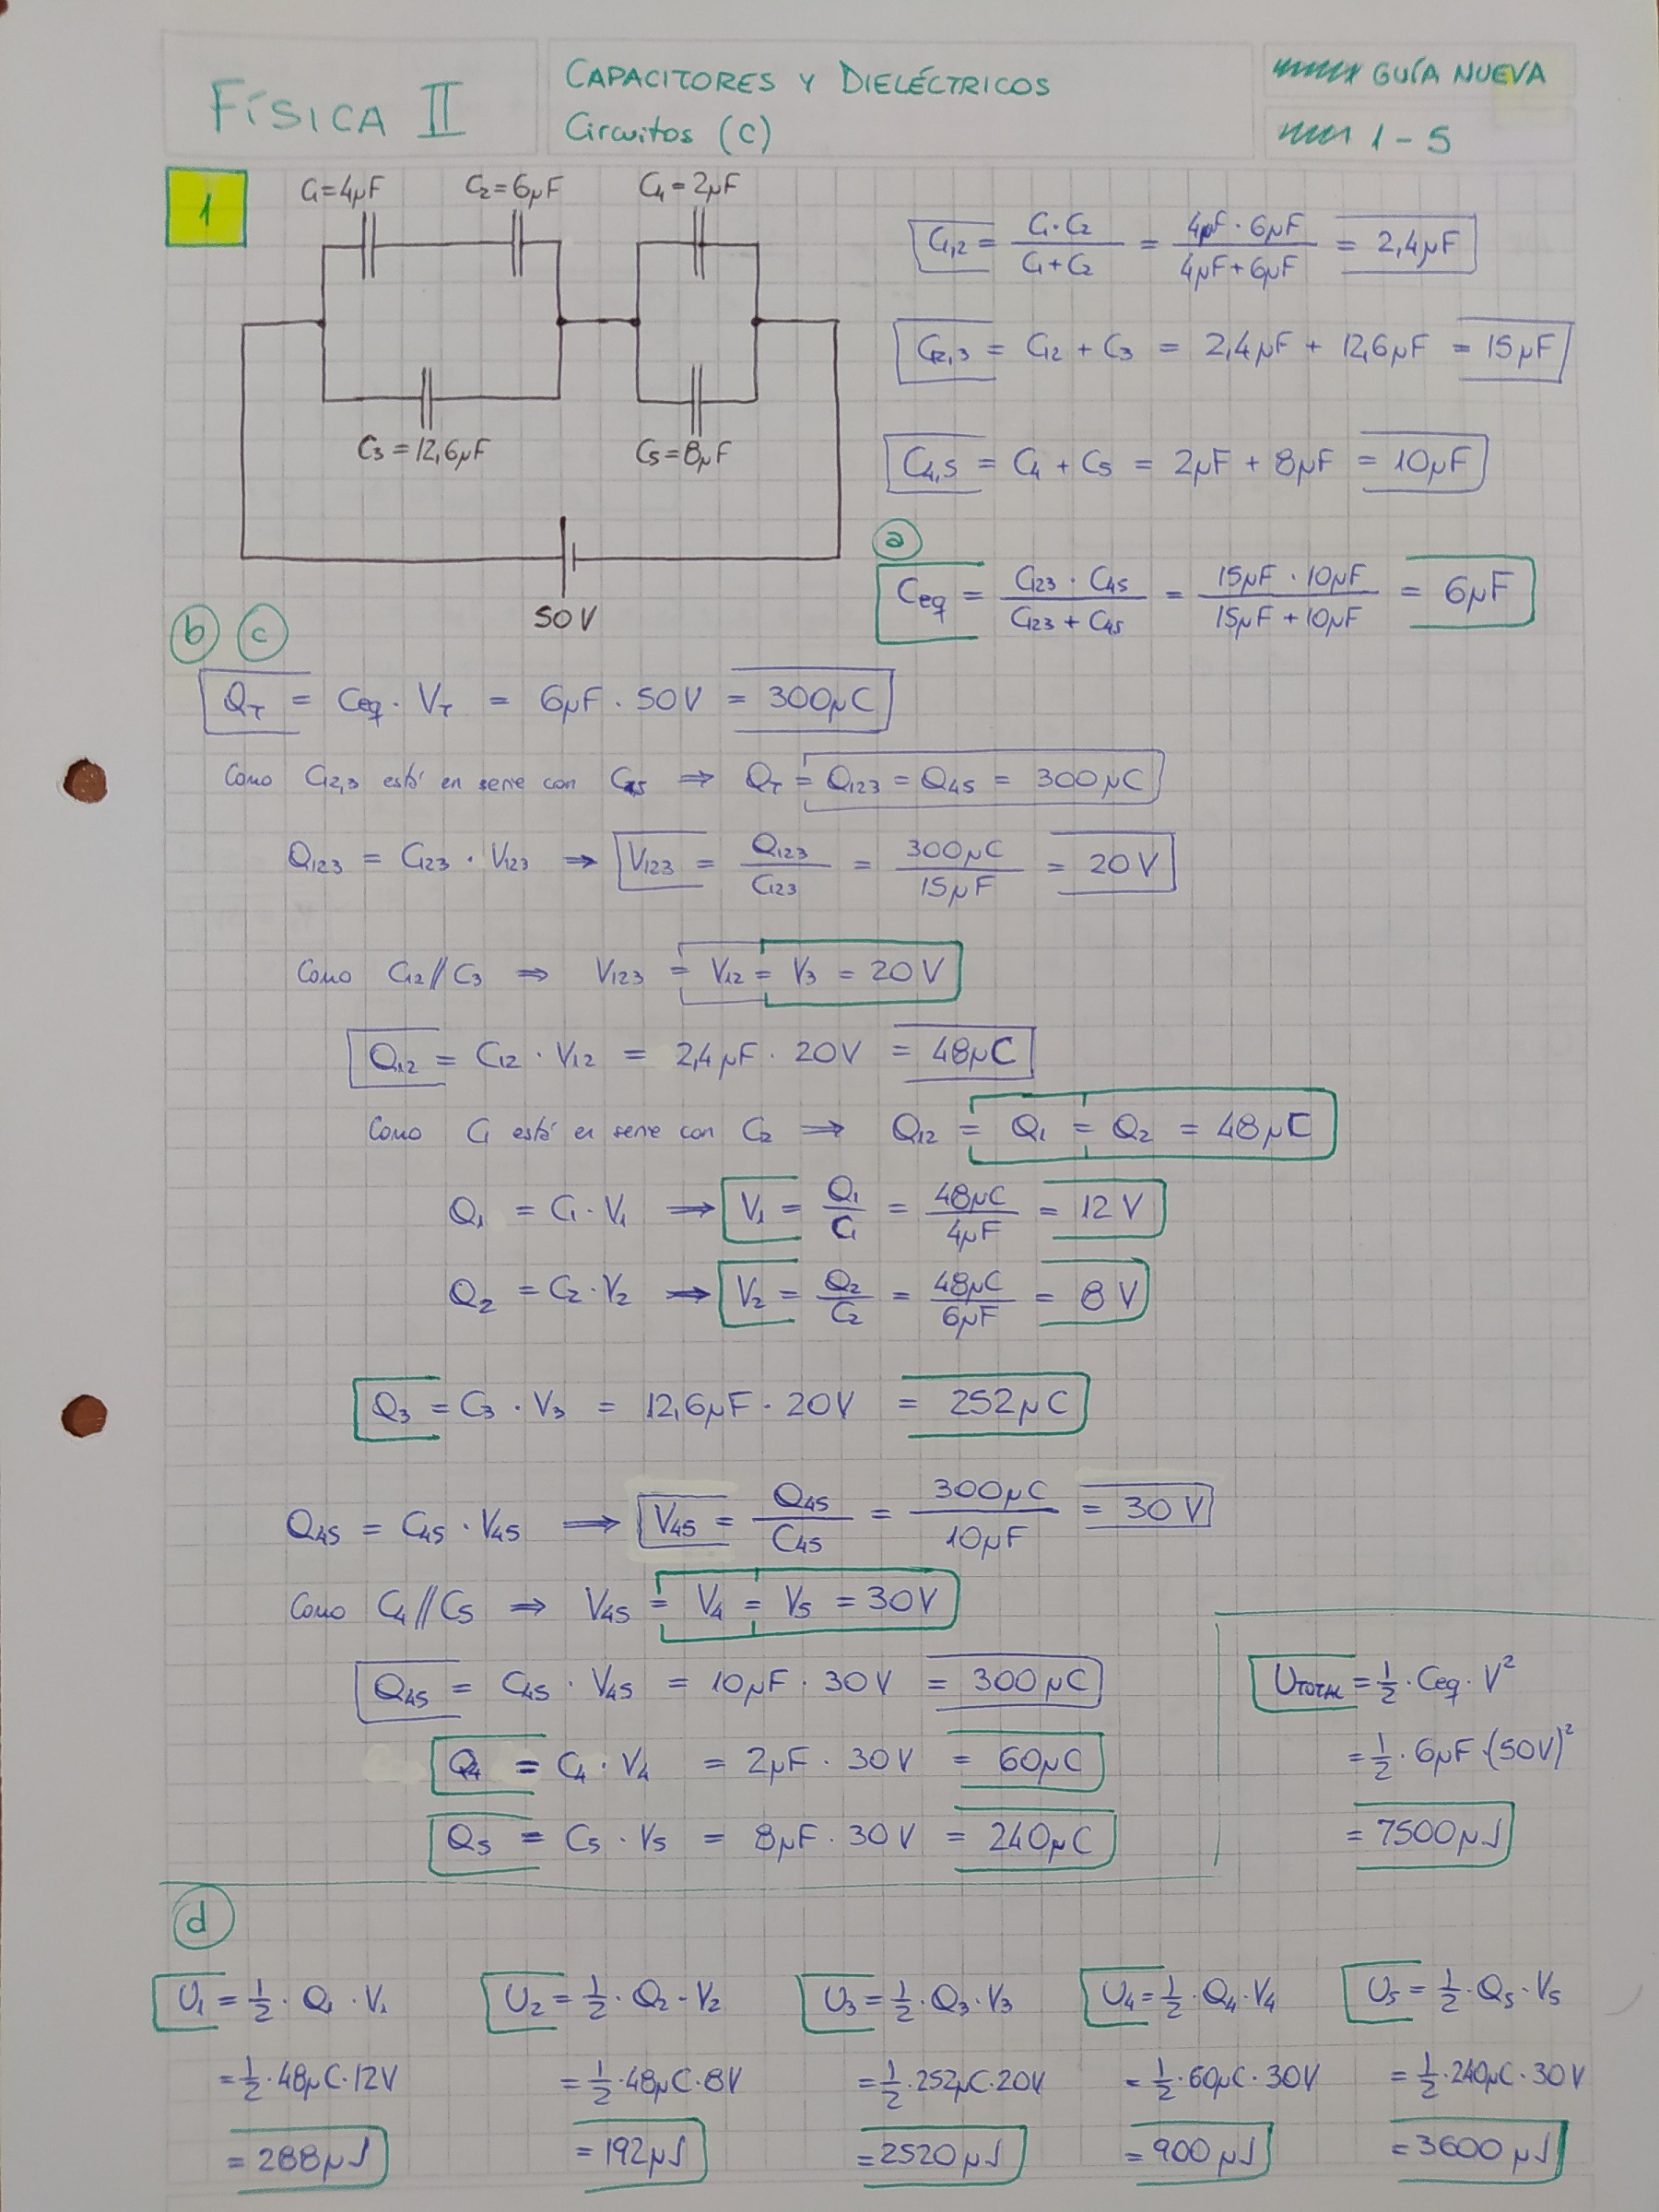 FÍSICA II
CAPACITORES Y DIELÉCTRICOS
Circuitos (C)
GUÍA NUEVA
1-5
1
C₁=4μF C₂=6μF C₄=2μF
C₃=12,6μF C₅=8μF
50V
C₁,₂ = C₁·C₂ / C₁+C₂ = 4μF·6μF / 4μF+6μF = 2,4μF
C₁₂,₃ = C₁₂ + C₃ = 2,4μF + 12,6μF = 15μF
C₄,₅ = C₄ + C₅ = 2μF + 8μF = 10μF
a
Ceq = C₁₂₃·C₄₅ / C₁₂₃+C₄₅ = 15μF·10μF / 15μF+10μF = 6μF
b c
Q_T = Ceq · V_T = 6μF · 50V = 300μC
Como C₁₂,₃ está en serie con C₄₅ ⇒ Q_T = Q₁₂₃ = Q₄₅ = 300μC
Q₁₂₃ = C₁₂₃ · V₁₂₃ ⇒ V₁₂₃ = Q₁₂₃ / C₁₂₃ = 300μC / 15μF = 20V
Como C₁₂//C₃ ⇒ V₁₂₃ = V₁₂ = V₃ = 20V
Q₁₂ = C₁₂ · V₁₂ = 2,4μF · 20V = 48μC
Como C₁ está en serie con C₂ ⇒ Q₁₂ = Q₁ = Q₂ = 48μC
Q₁ = C₁·V₁ ⇒ V₁ = Q₁ / C₁ = 48μC / 4μF = 12V
Q₂ = C₂·V₂ ⇒ V₂ = Q₂ / C₂ = 48μC / 6μF = 8V
Q₃ = C₃ · V₃ = 12,6μF · 20V = 252μC
Q₄₅ = C₄₅ · V₄₅ ⇒ V₄₅ = Q₄₅ / C₄₅ = 300μC / 10μF = 30V
Como C₄//C₅ ⇒ V₄₅ = V₄ = V₅ = 30V
Q₄₅ = C₄₅ · V₄₅ = 10μF · 30V = 300μC
Q₄ = C₄ · V₄ = 2μF · 30V = 60μC
Q₅ = C₅ · V₅ = 8μF · 30V = 240μC
U_TOTAL = ½ · Ceq · V²
= ½ · 6μF · (50V)²
= 7500μJ
d
U₁ = ½ · Q₁ · V₁ U₂ = ½ · Q₂ · V₂ U₃ = ½ · Q₃ · V₃ U₄ = ½ · Q₄ · V₄ U₅ = ½ · Q₅ · V₅
= ½ · 48μC · 12V = ½ · 48μC · 8V = ½ · 252μC · 20V = ½ · 60μC · 30V = ½ · 240μC · 30V
= 288μJ = 192μJ = 2520μJ = 900μJ = 3600μJ